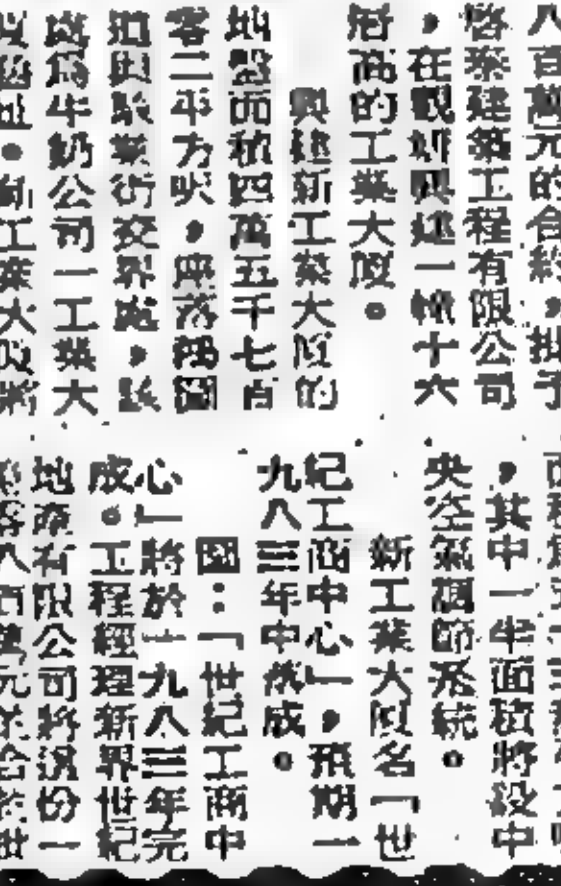 八百萬元的合約,批予
啓業建築工程有限公司
,在觀塘興建一幢十六
層高的工業大廈。
興建新工業大廈的
地盤面積四萬五千七百
零二平方呎,座落鴻圖
道與駿業街交界處,該
處爲牛奶公司一工業大
廈舊址。新工業大廈將
,其中一半面積將設中
央空氣調節系統。
新工業大廈名「世
紀工商中心」,預期一
九八三年中落成。
圖:「世紀工商中
心」將於一九八三年完
成。工程經理新界世紀
地產有限公司將這份一
八百萬元的合約批